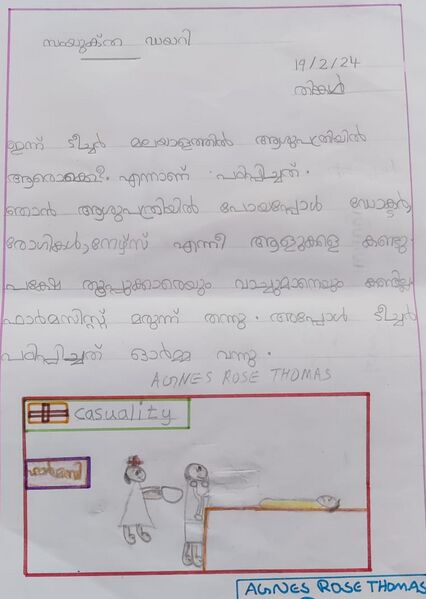 സംയുക്ത ഡയറി
19/2/24
തിങ്കൾ
ഇന്ന് ടീച്ചർ മലയാളത്തിൽ ആശുപത്രിയിൽ
ആരൊക്കെ. എന്നാണ് പഠിപ്പിച്ചത്.
ഞാൻ ആശുപത്രിയിൽ പോയപ്പോൾ ഡോക്ടർ,
രോഗികൾ, നേഴ്സ് എന്നീ ആളുകളെ കണ്ടു.
പക്ഷേ തൂപ്പുക്കാരെയും വാച്ചുമാനെയും കണ്ടില്ല.
ഫാർമസിസ്റ്റ് മരുന്ന് തന്നു. അപ്പോൾ ടീച്ചർ
പഠിപ്പിച്ചത് ഓർമ്മ വന്നു.
AGNES ROSE THOMAS
casuality
ഫാർമസി
AGNES ROSE THOMAS